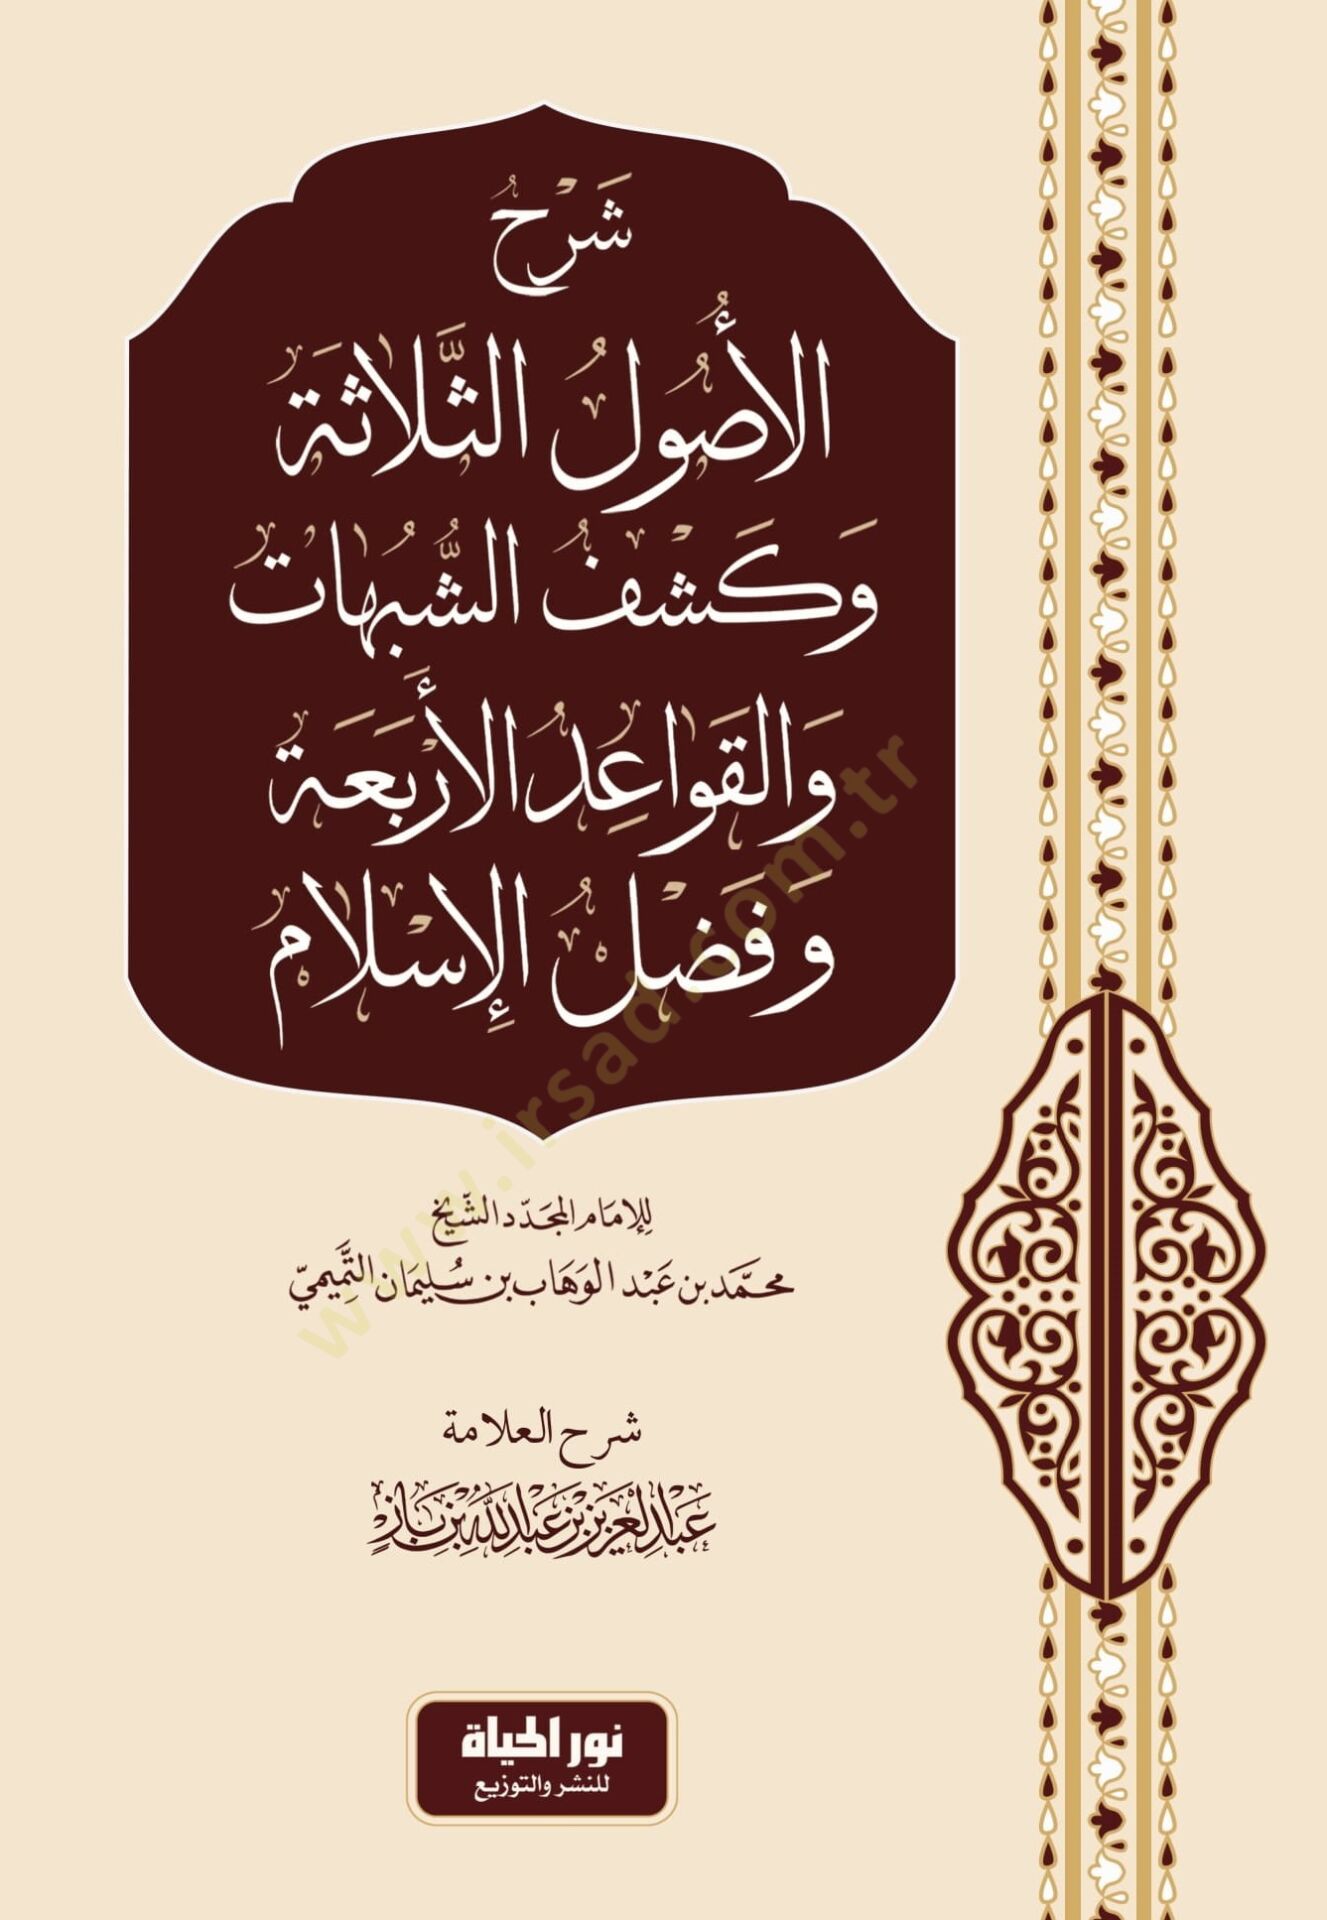 شَرْحُ
الأُصُولُ الثَّلَاثَةِ
وَكَشْفُ الشُّبُهَاتُ
وَالْقَوَاعِدُ الأَرْبَعَةُ
وَفَضْلُ الْإِسْلَامِ
لِلإمَام المجَدّد الشَّيْخ
محمَّد بن عَبْد الوَهَاب بن سُليمَان التَّمِيميّ
شرح العلامة
عَبْدِ الْعَزِيزِ بْنِ عَبْدِ اللَّهِ بْنِ بَازٍ
نور الحياة
للنشر والتوزيع
www.irsad.com.tr